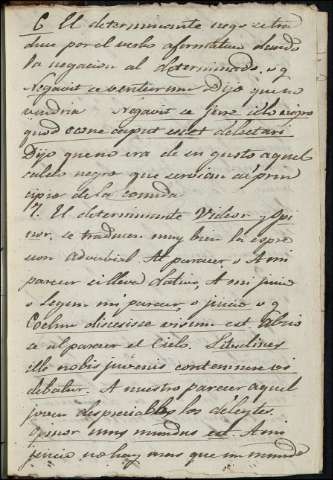 6. El determinante nego se tra
duce por el verbo afirmativo dando
la negacion al determinado. v. g.
Negavit se venturum Dijo que no
vendria Negavit se jure illo nigro
quod cœne caput esset delectari.
Dijo que no era de su gusto aquel
caldo negro que servian al prin
cipio de la comida
7. El determinante Videor y Opi
nor, se traducen muy bien la espre
sion adverbial Al parecer o A mi
parecer si lleva dativo A mi juicio
o Segun mi parecer, o juicio v. g.
Cœlum discesisse visum est Abrio
se al parecer el Cielo.
illo nobis juvenis contemnere vi
debatur. A nuestro parecer aquel
joven despreciaba los deleytes.
Opinor unus mundus est. A mi
juicio no hay mas que un mundo